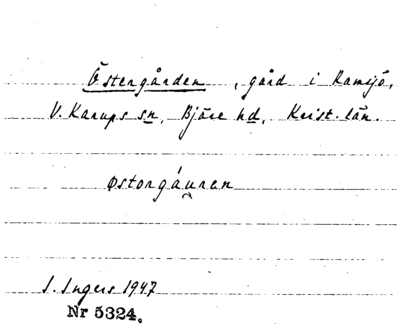 Östergården, gård i Ramsjö,
V. Karups sn, Bjäre hd, Krist. län.
østorgáu̯ren
I. Ingers 1947
Nr 5324.